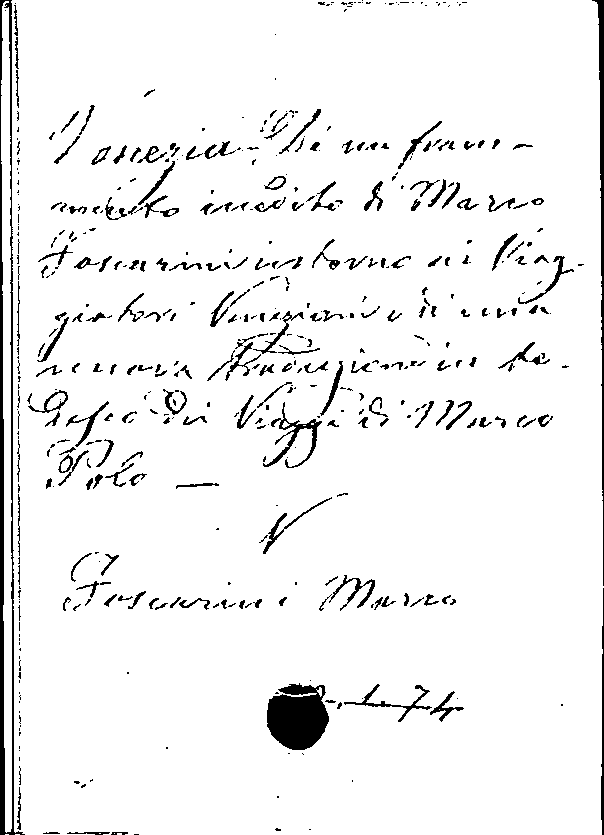 Venezia - Di un fram-
mento inedito di Marco
Foscarini intorno ai Viag-
giatori Veneziani e di una
nuova traduzione in te-
desco dei Viaggi di Marco
Polo —
V
Foscarini Marco
1-74